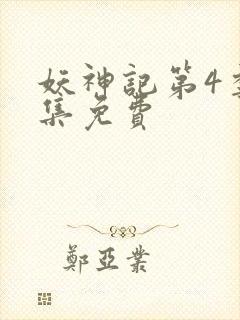 妖神記第4季
集免費
鄭亞業